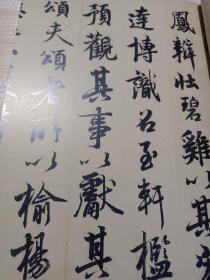 鳳辯壯碧雞以其文
達博識召至軒檻
預觀其事以獻其
頌夫頌者所以揄揚